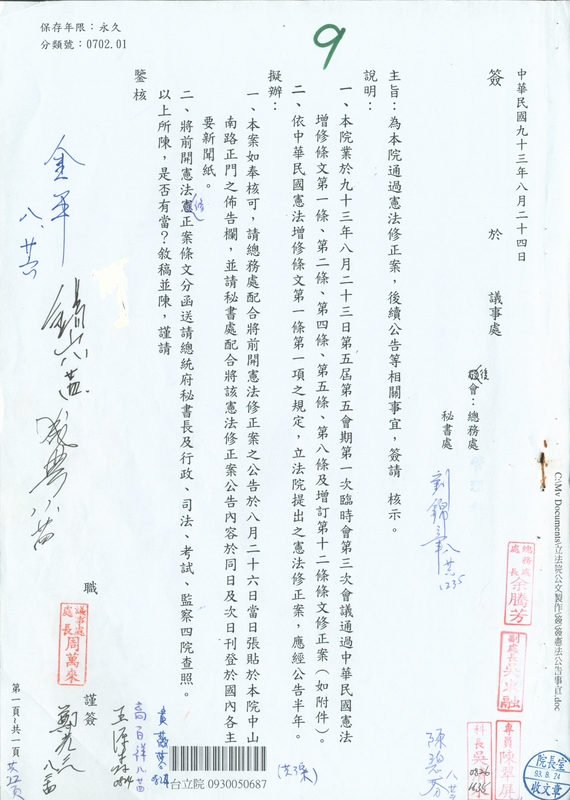 保存年限：永久
分類號：0702.01
9
中華民國九十三年八月二十四日
簽　於　議事處
後會：總務處
秘書處
主旨：為本院通過憲法修正案，後續公告等相關事宜，簽請　核示。
說明：
一、本院業於九十三年八月二十三日第五屆第五會期第一次臨時會第三次會議通過中華民國憲法
增修條文第一條、第二條、第四條、第五條、第八條及增訂第十二條條文修正案（如附件）。
二、依中華民國憲法增修條文第一條第一項之規定，立法院提出之憲法修正案，應經公告半年。
擬辦：
一、本案如奉核可，請總務處配合將前開憲法修正案之公告於八月二十六日當日張貼於本院中山
南路正門之佈告欄，並請秘書處配合將該憲法修正案公告內容於同日及次日刊登於國內各主
要新聞紙。
二、將前開憲法修正案條文分函送請總統府秘書長及行政、司法、考試、監察四院查照。
以上所陳，是否有當？敘稿並陳，謹請
鑒核
職
議事處處長 周萬來
謹簽
劉錦章 八廿五 1235
總務處處長 余騰芳
專員 陳翠屏
科長 吳
陳碧芬
院長室
93.8.24
收文章
高百祥
王
台立院 0930050687
第一頁～共一頁
C:\My Documents\立法院公文製作\簽\簽憲法公告事宜.doc